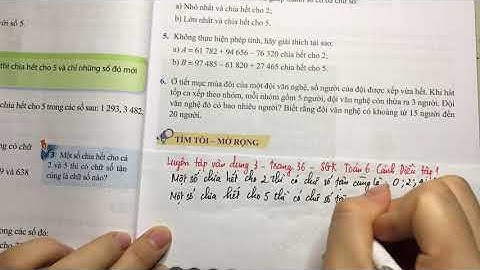 a) Nhỏ nhất và chia hết cho 2;
b) Lớn nhất và chia hết cho 5.
5. Không thực hiện phép tính, hãy giải thích tại sao:
a) A = 61 782 + 94 656 – 76 320 chia hết cho 2;
b) B = 97 485 – 61 820 + 27 465 chia hết cho 5.
6. Ở tiết mục múa đôi của một đội văn nghệ, số người của đội được xếp vừa hết. Khi hát
tốp ca xếp theo nhóm, mỗi nhóm gồm 5 người, đội văn nghệ còn thừa ra 3 người. Đội
văn nghệ đó có bao nhiêu người? Biết rằng đội văn nghệ có khoảng từ 15 người đến
20 người.
TÌM TÒI – MỞ RỘNG
Luyện tập vận dụng 3 - trang 36 - SGK Toán 6 Cánh Diều tập 1
Một số chia hết cho 2 thì có chữ số tận cùng là 0; 2;
Một số chia hết cho 5 thì có chữ số
với số 5.
thì chia hết cho 5 và chỉ những số đó mới
chia hết cho 5 trong các số sau: 1 293, 3 482;
ng có chữ
9 và 638
3 Một số chia hết cho cả
2 và 5 thì có chữ số tận
cùng là chữ số nào?
ng các số đó: